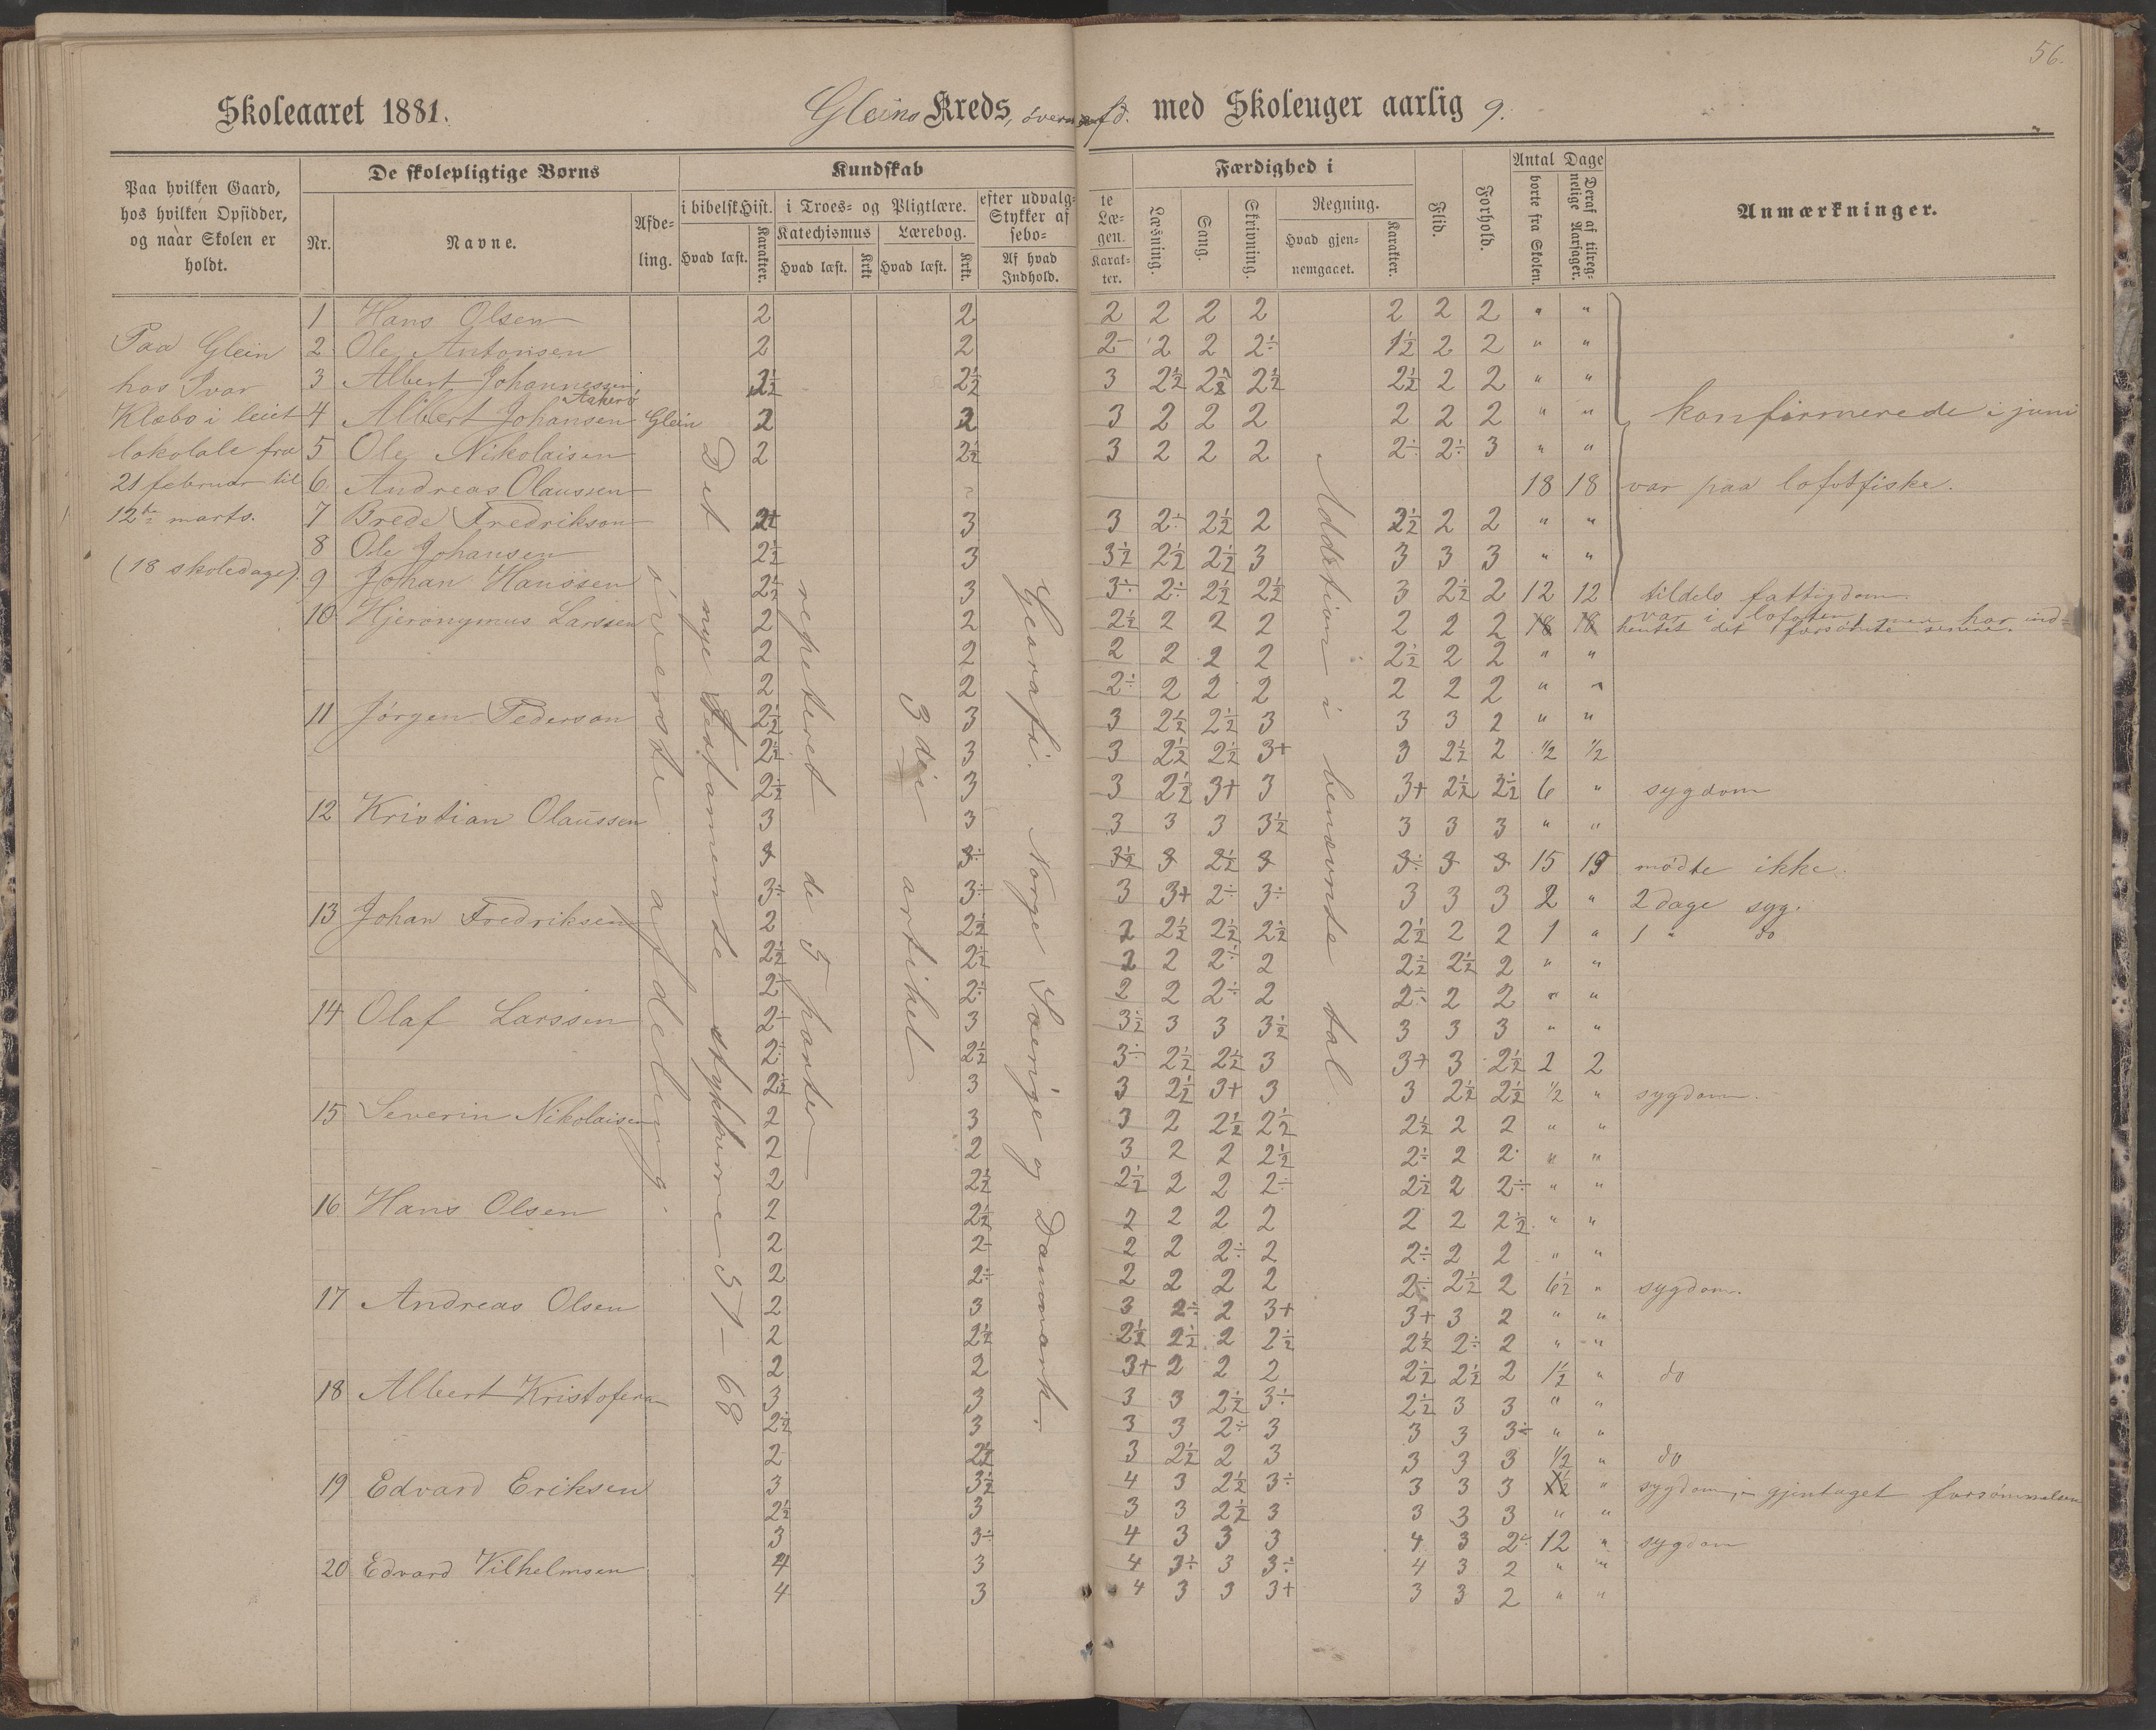 56.
Skoleaaret 1881.
Gleins Kreds, överste afd. med Skoleuger aarlig 9.
Paa hvilken Gaard, hos hvilken Opsidder, og naar Skolen er holdt.
De skolepligtige Børns
Nr.
Navne.
Afdeling.
Kundskab
i bibelsk Hist.
Hvad læst.
Karakter.
i Troes- og Pligtlære.
Katechismus
Hvad læst.
Krkt
Lærebog.
Hvad læst.
Krkt.
efter udvalgte Stykker af Læsebogen.
Af hvad Indhold.
Karakter.
Færdighed i
Læsning.
Sang.
Skrivning.
Regning.
Hvad gjennemgaaet.
Karakter.
Flid.
Forhold.
Antal Dage
borte fra Skolen.
Deraf af tilregnelige Aarsager.
Anmærkninger.
Paa Glein
hos Ivar
Klæbo i leiet
lokolale fra
21 februar til
12te marts.
(18 skoledage).
överste afdeling.
Det nye Testamente stykkerne 51 - 68
repeteret de 5 parter
3die artikel
Geografi. Norge Sverige og Danmark.
Addition i benævnte tal.
1 Hans Olsen 2 2 2 2 2 2 2 2 2 " "
2 Ole Antonsen 2 2 2- 2 2 2÷ 1½ 2 2 " "
3 Albert Johannessen 2½ 2½ 3 2½ 2½ 2½ 2½ 2 2 " "
4 Albert Johansen Glein 2 2 3 2 2 2 2 2 2 " " konfirmerede i juni
5 Ole Nikolaisen 2 2½ 3 2 2 2 2÷ 2÷ 3 " "
6 Andreas Olaussen 18 18 var paa lofotfiske.
7 Brede Fredrikson 2+ 3 3 2÷ 2½ 2 2½ 2 2 " "
8 Ole Johansen 2½ 3 3½ 2½ 2½ 3 3 3 3 " "
9 Johan Hanssen 2½ 3 3÷ 2÷ 2½ 2½ 3 2½ 2 12 12 tildels fattigdom.
10 Hjeronymus Larssen 2 2 2½ 2 2 2 2 2 2 18 18 var i lofoten, men har ind-
hentet det forsömte senere.
2 2 2 2 2 2 2½ 2 2 " "
2 2 2÷ 2 2 2 2 2 2 " "
11 Jörgen Pederson 2½ 3 3 2½ 2½ 3 3 3 2 " "
2½ 3 3 2½ 2½ 3+ 3 2½ 2 ½ ½
2½ 3 3 2½ 3+ 3 3+ 2½ 2½ 6 " sygdom
12 Kristian Olaussen 3 3 3 3 3 3½ 3 3 3 " "
3 3÷ 3½ 3 2½ 3 3÷ 3 3 15 15 mödte ikke.
3÷ 3÷ 3 3+ 2÷ 3÷ 3 3 3 2 " 2 dage syg.
13 Johan Fredriksen 2 2½ 2 2½ 2½ 2½ 2½ 2 2 1 " 1 " do
2½ 2½ 2 2 2÷ 2 2½ 2½ 2 " "
2÷ 2÷ 2 2 2÷ 2 2÷ 2 2 " "
14 Olaf Larssen 2- 3 3½ 3 3 3½ 3 3 3 " "
2÷ 2½ 3÷ 2½ 2½ 3 3+ 3 2½ 2 2
2½ 3 3 2½ 3+ 3 3 2½ 2½ ½ " sygdom.
15 Severin Nikolaisen 2 3 3 2 2½ 2½ 2½ 2 2 " "
2 2 3 2 2 2½ 2÷ 2 2 " "
2 2½ 2½ 2 2 2÷ 2½ 2 2÷ " "
16 Hans Olsen 2 2½ 2 2 2 2 2 2 2½ " "
2 2- 2 2 2÷ 2 2÷ 2 2 " "
2 2÷ 2 2 2 2 2÷ 2½ 2 6½ " sygdom.
17 Andreas Olsen 2 3 3 2÷ 2 3+ 3+ 3 2 " "
2 2½ 2½ 2½ 2 2½ 2½ 2÷ 2 " "
2 2 3+ 2 2 2 2½ 2½ 2 1½ " do
18 Albert Kristofers 3 3 3 3 2½ 3÷ 2½ 3 3 " "
2½ 3 3 3 2÷ 3 3 3 3÷ " "
2 2½ 3 2½ 2 3 3 3 3 ½ " do
19 Edvard Eriksen 3 3½ 4 3 2½ 3÷ 3 3 3 " sygdom, gjentaget forsömmelsen
2½ 3 3 3 2½ 3 3 3 3 " "
3 3÷ 4 3 3 3 4 3 2÷ 12 " sygdom
20 Edvard Vilhelmsen 4 3 4 3÷ 3 3÷ 4 3 2 " "
4 3 4 3 3 3+ 3 3 2 " "